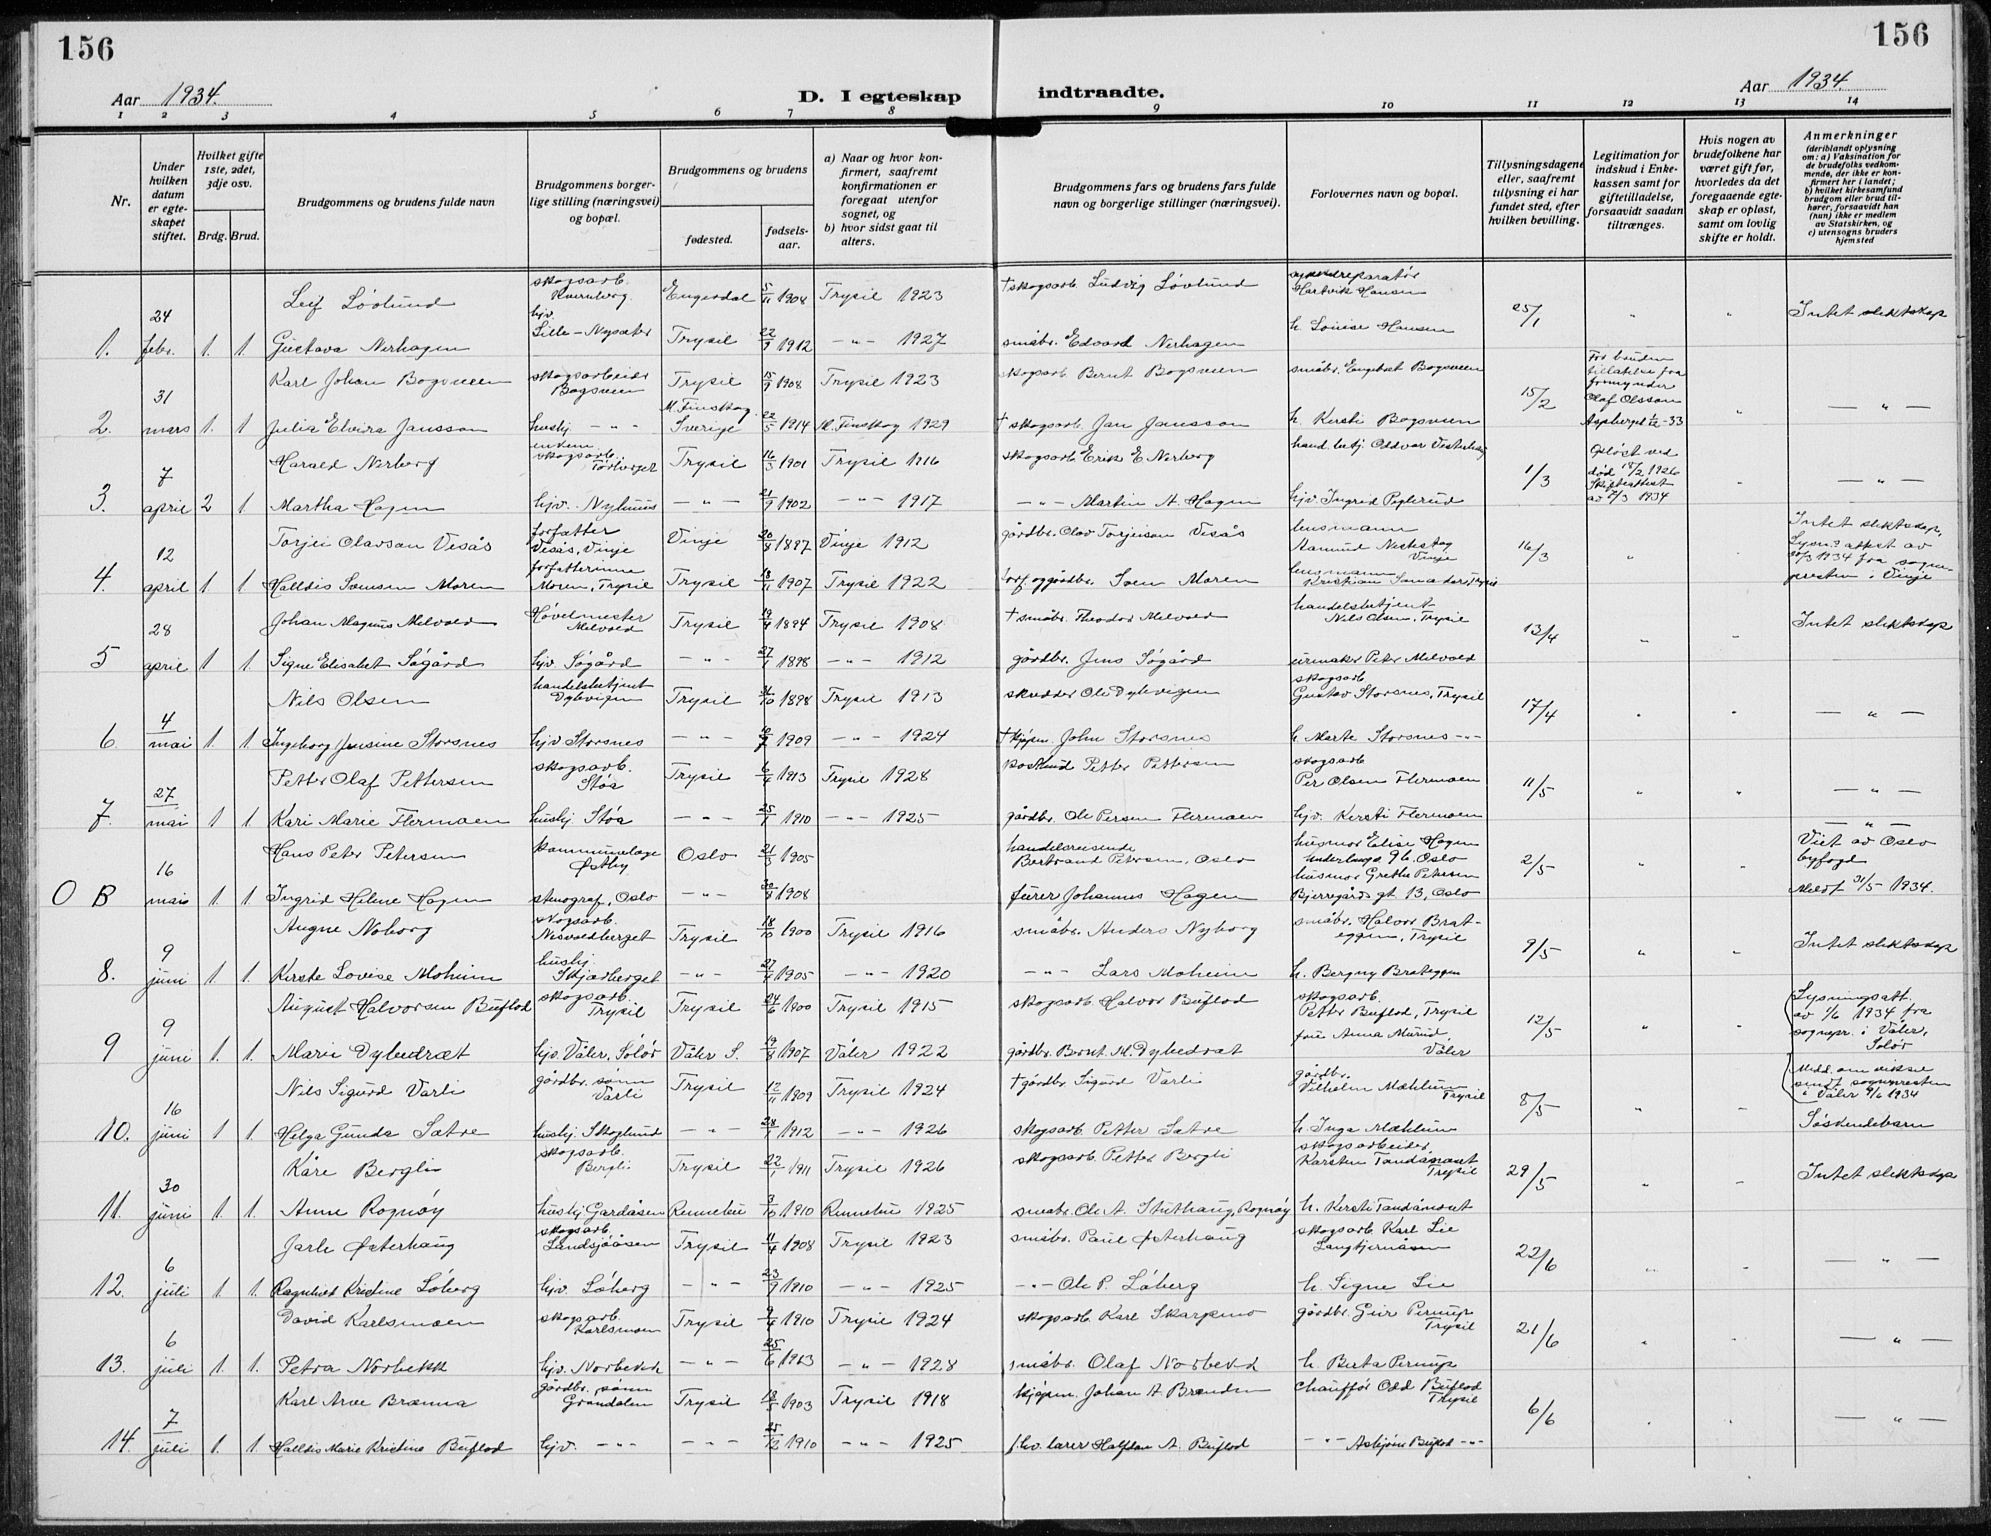 156
156
Aar 1934.
D. I egteskap indtraadte.
Aar 1934.
1 2 3 4 5 6 7 8 9 10 11 12 13 14
Nr.
Under hvilken datum er egteskapet stiftet.
Hvilket gifte 1ste, 2det, 3dje osv.
Brdg. Brud.
Brudgommens og brudens fulde navn
Brudgommens borgerlige stilling (næringsvei) og bopæl.
Brudgommens og brudens
fødested.
fødselsaar.
a) Naar og hvor konfirmert, saafremt konfirmationen er foregaat utenfor sognet, og
b) hvor sidst gaat til alters.
Brudgommens fars og brudens fars fulde navn og borgerlige stillinger (næringsvei).
Forlovernes navn og bopæl.
Tillysningsdagene eller, saafremt tillysning ei har fundet sted, efter hvilken bevilling.
Legitimation for indskud i Enkekassen samt for giftetilladelse, forsaavidt saadan tiltrænges.
Hvis nogen av brudefolkene har været gift før, hvorledes da det foregaaende egteskap er opløst, samt om lovlig skifte er holdt.
Anmerkninger
(deriblandt oplysning om: a) Vaksination for de brudefolks vedkommende, der ikke er konfirmert her i landet; b) hvilket kirkesamfund brudgom eller brud tilhører, forsaavidt han (hun) ikke er medlem av Statskirken, og c) utensogns bruders hjemsted
Leif Lövlund skogsarb. Engerdal 5/11 1904 Trysil 1923 † skogsarb. Ludvig Lövlund Hartvik Hansen
1. 24 febr. 1. 1 Gustava Nerhagen hjv. Lille-Nysæter Trysil 22/9 1912 -"- 1927 småbr. Edvard Nerhagen h. Louise Hansen 25/1 " " Intet slektskap
Karl Johan Bogsveen skogsarbeider Bogsveen Trysil 15/9 1908 Trysil 1923 skogsarb Bernt Bogsveen småbr. Engebret Bogsveen
2. 31 mars 1. 1 Julia Elvira Jansson hushj. -"- M. Finskog. Sverige 22/5 1914 M. Finskog 1929 † skogsarb. Jan Jansson h. Kersti Bogsveen 15/2 For bruden tillatelse fra formynder Olaf Olsson Aspberget 1/12-33 " -"-
Harald Nerberg enkem. skogsarb. Törberget Trysil 16/3 1901 Trysil 1916 skogsarb. Erik E. Nerberg
3. 7 april 2 1 Martha Hagen hjv. Nyhuus -"- 21/9 1902 -"- 1917 -"- Martin A. Hagen hjv. Ingrid 1/3 Oplöst ved död 15/2 1926 Skifteattest av 2/3 1934 " -"-
Torjei Olavsan Vesås forfatter Vesås, Vinje Vinje 20/8 1897 Vinje 1912 gårdbr. Olav Torjeisen Vesås lensmann Vinje
4. 12 april 1 1 Halldis Svensen Moren forfatterinne Moren, Trysil Trysil 18/11 1907 Trysil 1922 forf. og gårdbr. Sven Moren lensmann Kristian 16/3 " " Intet slektskap, Lysn. attest av 20/3 1934 fra sognepresten i Vinje
Johan Magnus Melvold Hövelmester Melvold Trysil 19/4 1894 Trysil 1908 † småbr. Theodor Melvold handelsbetjent Nils Olsen, Trysil
5 28 april 1 1. Signe Elisabet Sögård hjv. Sögård -"- 27/1 1898 -"- 1912 gårdbr. Jens Sögård urmaker Peter Melvold 13/4 " " Intet slektskap
Nils Olsen handelsbetjent Dybvigen Trysil 31/10 1898 Trysil 1913 skredder Ole Dybvigen skogsarb. Gustav Storsnes, Trysil
6. 4 mai 1. 1. Ingeborg Jensine Storsnes hjv Storsnes -"- 1909 -"- 1924 † kjöpm. John Storsnes h. Marte Storsnes -"- 17/4 " " -"-
Petter Olaf Pettersen skogsarb. Stöa Trysil 6/4 1913 Trysil 1928 Petter Pettersen skogsarb Per Olsen Flermoen
7. 27 mai 1 1. Kari Marie Flermoen hushj Stöa -"- 25/1 1910 -"- 1925 gårdbr. Ole Persen Flermoen hjv. Kersti Flermoen 11/5 " " -"-
Hans Peter Petersen kommunelæge Östby Oslo 21/3 1905 handelsreisende Bertrand Petersen, Oslo husmor Elise Hagen 96, Oslo
O B 16 mai 1. 1. Ingrid Helene Hagen stenograf, Oslo -"- 30/8 1908 Johannes Hagen husmor Grethe Petersen Bjerregårds gt 13, Oslo 2/5 " " -"- Viet av Oslo byfogd Meldt 31/5 1934.
Augne Noborg skogsarb. Nesvoldberget Trysil 18/10 1900 Trysil 1916 småbr. Anders Nyborg småbr. Halvor Brateggen, Trysil
8. 9 juni 1 1. Kirste Lovise Moheim hushj. Skjærberget -"- 27/4 1905 -"- 1920 -"- Lars Moheim h. Bergny Brateggen 9/5 " " Intet slektskap
August Halvorsen Buflod skogsarb. Trysil Trysil 24/6 1900 Trysil 1915 skogsarb. Halvor Buflod skogsarb. Petter Buflod, Trysil
9 9 juni 1. 1. Marie Dybedræt hjv. Våler, Solör Våler S. 19/8 1907 Våler 1922 gårdbr. Bernt M. Dybedræt frue Anna Murud, Våler 12/5 " " Lysningsatt. av 1/6 1934 fra sognepr. i Våler, Solör
Nils Sigurd Varli gårdbr. sönn Varli Trysil 12/11 1909 Trysil 1924 † gårdbr Sigurd Varli gårdbr. Vilhelm Mæhlum Trysil Medd. om vielse sendt sognepresten i Våler 9/6 1934
10. 16 juni 1 1. Helga Gunda Sætre hushj. Skoglund -"- 28/1 1912 -"- 1926 skogsarb. Petter Sætre h. Inga Mæhlum 8/5 " " Söskendebarn
Kåre Bergli skogsarb. Bergli Trysil 22/1 1911 Trysil 1926 skogsarb. Petter Bergli skogsarbeider, Karsten Tandånæset Trysil
11. 30 juni 1. 1. Anne Rognöy hushj. Gardåsen Rennebu 3/10 1910 Rennebu 1925 småbr. Ole A. Stuthaug, Rognöy h. Kersti Tandånæset 29/5 " " Intet slektskap
Jarle Österhaug skogsarb. Landsjöåsen Trysil 11/4 1908 Trysil 1923 småbr. Paul Österhaug skogsarb. Karl Lie Langtjernåsen
12. 6 juli 1 1. Ragnhild Kristine Löberg hjv. Löberg -"- 23/9 1910 -"- 1925 -"- Ole P. Löberg h. Signe Lie 22/6 " " -"-
David Karlsmoen skogsarb. Karlsmoen Trysil 9/4 1910 Trysil 1924 skogsarb. Karl Skarpmo gårdbr. Geir Pernup Trysil
13. 6 juli 1. 1. Petra Norbekk hjv. Norbekk -"- 25/6 1913 -"- 1928 småbr. Olaf Norbekk h. Berta Pernup 21/6 " " -"-
Karl Arve Brænna gårdbr. sönn Grøndalen Trysil 18/5 1903 Trysil 1918 kjöpm. Johan A. Brenden chaufför Odd Buflod Trysil
14. 7 juli 1. 1. Halldis Marie Kristine Buflod hjv. -"- -"- 25/12 1910 -"- 1925 fhv. lærer Halfdan A. Buflod -"- Asbjörn Buflod -"- 6/6 " " -"-